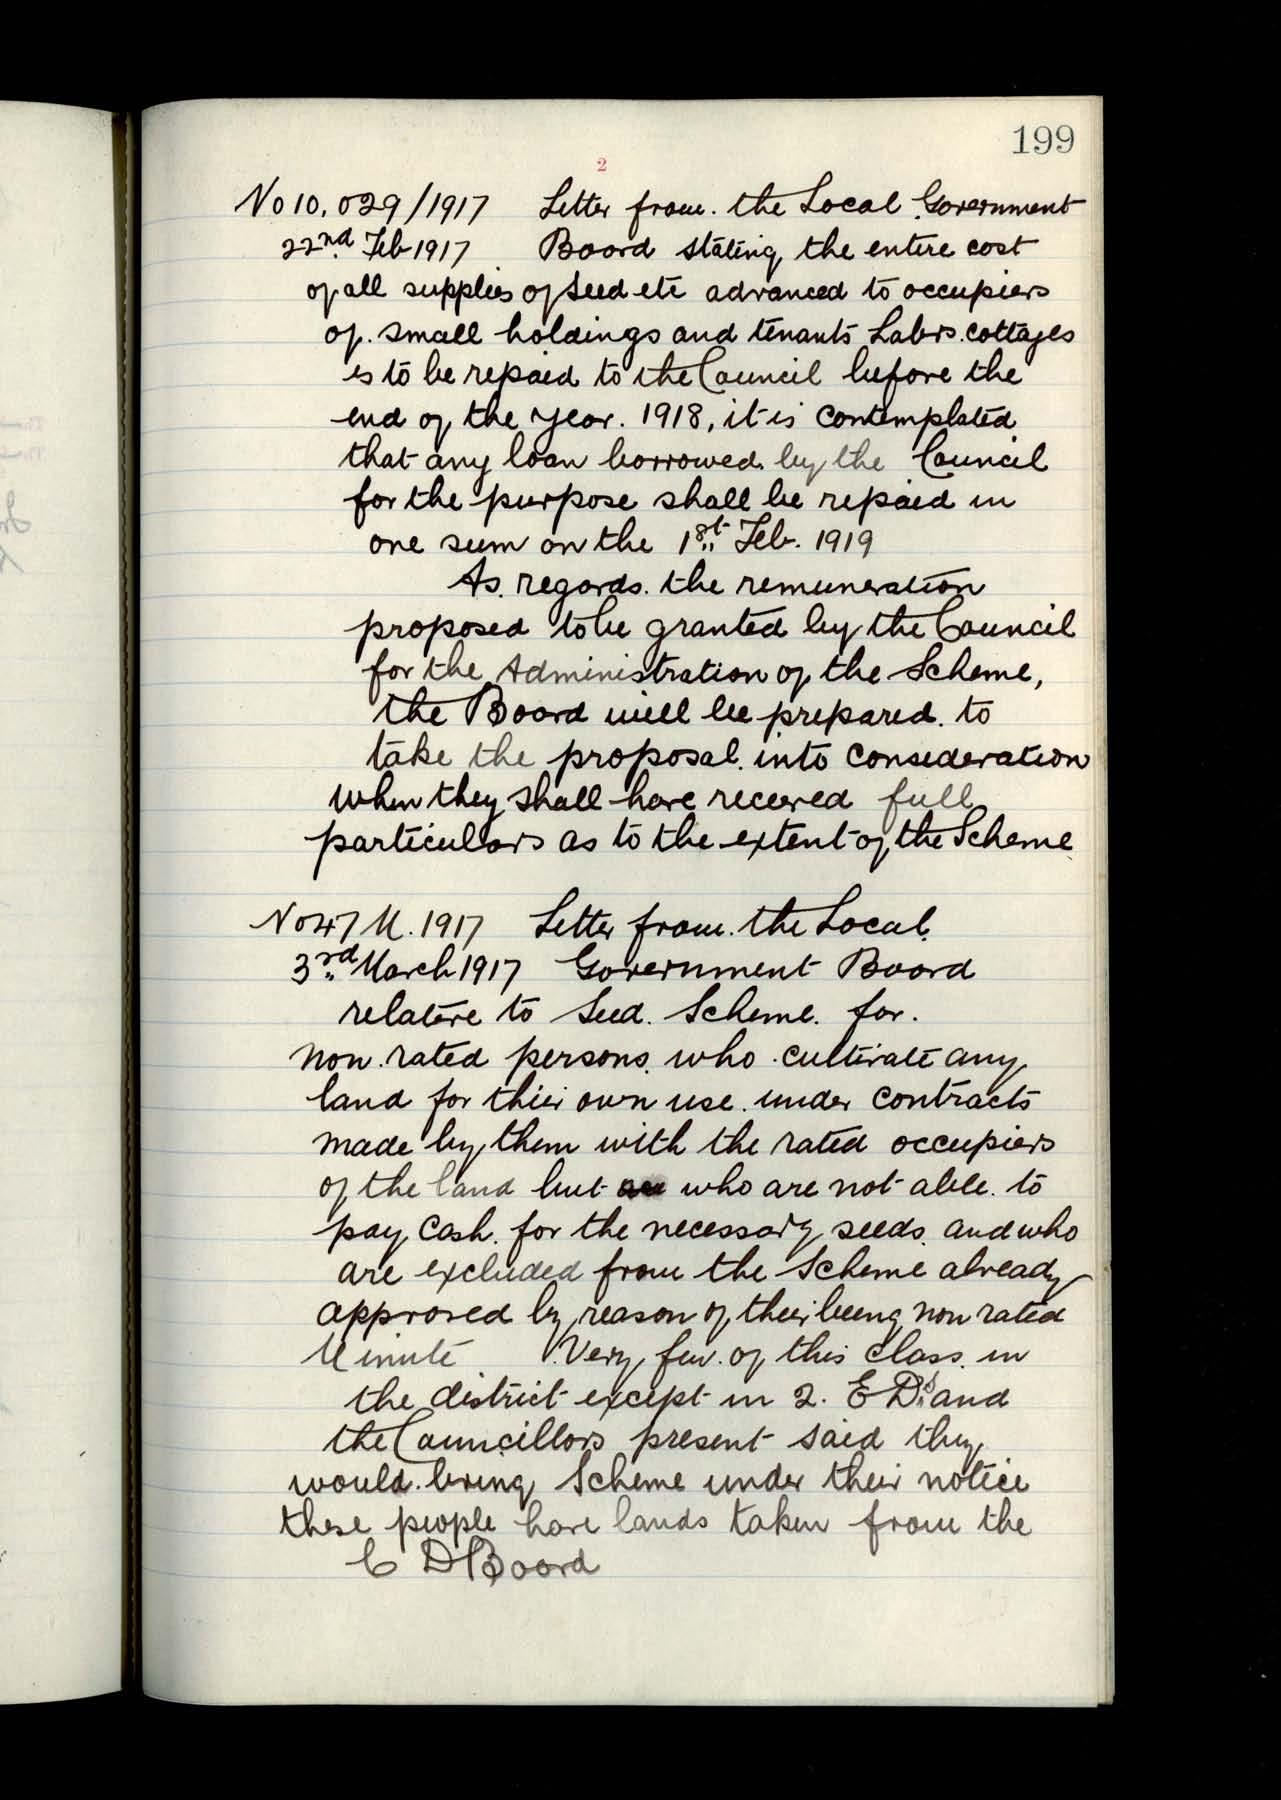 199
2
No 10,029/1917 Letter from the Local Government
22nd Feb 1917 Board stating the entire cost
of all supplies of Seed etc advanced to occupiers
of small holdings and tenants Labrs. cottages
is to be repaid to the Council before the
end of the year. 1918, it is contemplated
that any loan borrowed by the Council
for the purpose shall be repaid in
one sum on the 1st Feb. 1919
As regards the remuneration
proposed to be granted by the Council
for the Administration of the Scheme,
the Board will be prepared to
take the proposal into consideration
when they shall have received full
particulars as to the extent of the Scheme
No 47 M. 1917 Letter from the Local
3rd March 1917 Government Board
relative to Seed Scheme for
non rated persons who cultivate any
land for their own use under contracts
made by them with the rated occupiers
of the land but who are not able to
pay cash for the necessary seeds and who
are excluded from the Scheme already
approved by reason of their being non rated
Minute Very few of this class in
the district except in 2. E Ds and
the Councillors present said they
would bring Scheme under their notice
these people have lands taken from the
C D Board